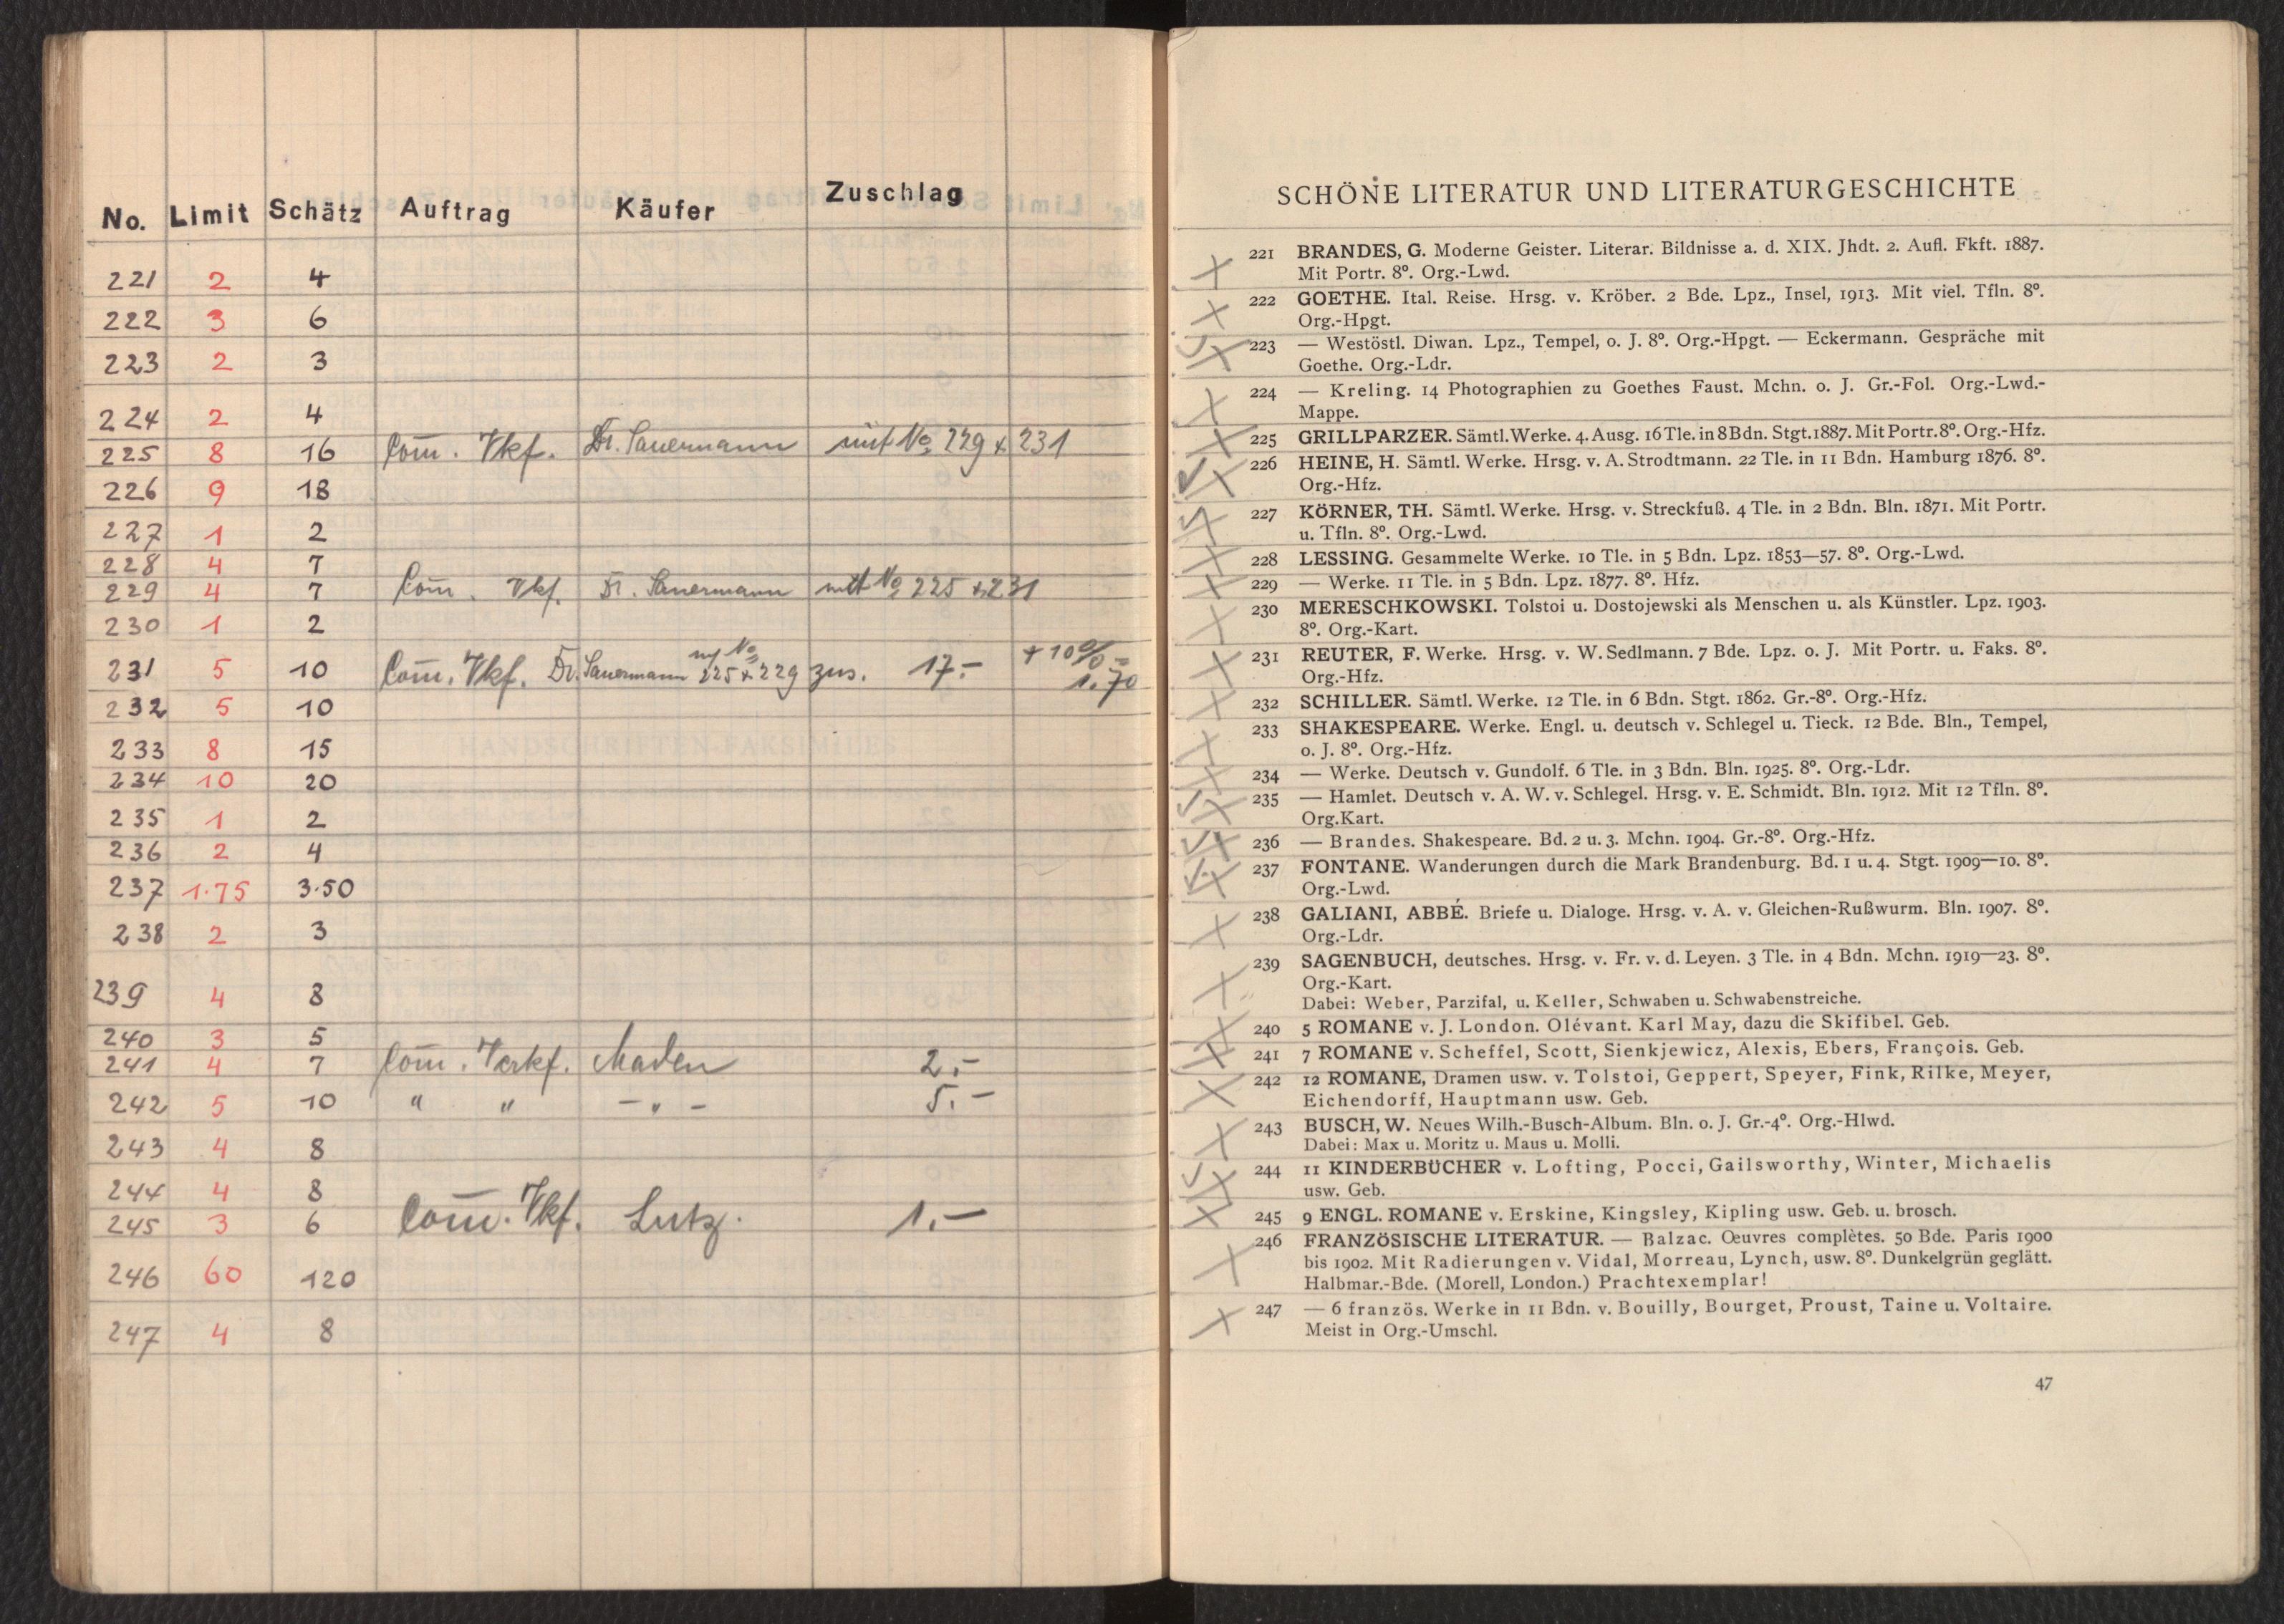 No. Limit Schätz Auftrag Käufer Zuschlag
221 2 4
222 3 6
223 2 3
224 2 4
225 8 16 Com. Vkf. Dr. Sauermann mit No 229 + 231
226 9 18
227 1 2
228 4 7
229 4 7 Com. Vkf. Dr. Sauermann mit No 225 + 231
230 1 2
231 5 10 Com. Vkf. Dr. Sauermann No 225 + 229 zus. 17.- + 10% = 1.70
232 5 10
233 8 15
234 10 20
235 1 2
236 2 4
237 1.75 3.50
238 2 3
239 4 8
240 3 5
241 4 7 Com. Verkf. 2.-
242 5 10 " " - " - 5.-
243 4 8
244 4 8
245 3 6 Com. Vkf. Lutz. 1.-
246 60 120
247 4 8
SCHÖNE LITERATUR UND LITERATURGESCHICHTE
221 BRANDES, G. Moderne Geister. Literar. Bildnisse a. d. XIX. Jhdt. 2. Aufl. Fkft. 1887.
Mit Portr. 8°. Org.-Lwd.
222 GOETHE. Ital. Reise. Hrsg. v. Kröber. 2 Bde. Lpz., Insel, 1913. Mit viel. Tfln. 8°.
Org.-Hpgt.
223 — Westöstl. Diwan. Lpz., Tempel, o. J. 8°. Org.-Hpgt. — Eckermann. Gespräche mit
Goethe. Org.-Ldr.
224 — Kreling. 14 Photographien zu Goethes Faust. Mchn. o. J. Gr.-Fol. Org.-Lwd.-
Mappe.
225 GRILLPARZER. Sämtl. Werke. 4. Ausg. 16 Tle. in 8 Bdn. Stgt. 1887. Mit Portr. 8°. Org.-Hfz.
226 HEINE, H. Sämtl. Werke. Hrsg. v. A. Strodtmann. 22 Tle. in 11 Bdn. Hamburg 1876. 8°.
Org.-Hfz.
227 KÖRNER, TH. Sämtl. Werke. Hrsg. v. Streckfuß. 4 Tle. in 2 Bdn. Bln. 1871. Mit Portr.
u. Tfln. 8°. Org.-Lwd.
228 LESSING. Gesammelte Werke. 10 Tle. in 5 Bdn. Lpz. 1853—57. 8°. Org.-Lwd.
229 — Werke. 11 Tle. in 5 Bdn. Lpz. 1877. 8°. Hfz.
230 MERESCHKOWSKI. Tolstoi u. Dostojewski als Menschen u. als Künstler. Lpz. 1903.
8°. Org.-Kart.
231 REUTER, F. Werke. Hrsg. v. W. Sedlmann. 7 Bde. Lpz. o. J. Mit Portr. u. Faks. 8°.
Org.-Hfz.
232 SCHILLER. Sämtl. Werke. 12 Tle. in 6 Bdn. Stgt. 1862. Gr.-8°. Org.-Hfz.
233 SHAKESPEARE. Werke. Engl. u. deutsch v. Schlegel u. Tieck. 12 Bde. Bln., Tempel,
o. J. 8°. Org.-Hfz.
234 — Werke. Deutsch v. Gundolf. 6 Tle. in 3 Bdn. Bln. 1925. 8°. Org.-Ldr.
235 — Hamlet. Deutsch v. A. W. v. Schlegel. Hrsg. v. E. Schmidt. Bln. 1912. Mit 12 Tfln. 8°.
Org.Kart.
236 — Brandes. Shakespeare. Bd. 2 u. 3. Mchn. 1904. Gr.-8°. Org.-Hfz.
237 FONTANE. Wanderungen durch die Mark Brandenburg. Bd. 1 u. 4. Stgt. 1909—10. 8°.
Org.-Lwd.
238 GALIANI, ABBÉ. Briefe u. Dialoge. Hrsg. v. A. v. Gleichen-Rußwurm. Bln. 1907. 8°.
Org.-Ldr.
239 SAGENBUCH, deutsches. Hrsg. v. Fr. v. d. Leyen. 3 Tle. in 4 Bdn. Mchn. 1919—23. 8°.
Org.-Kart.
Dabei: Weber, Parzifal, u. Keller, Schwaben u. Schwabenstreiche.
240 5 ROMANE v. J. London. Olévant. Karl May, dazu die Skifibel. Geb.
241 7 ROMANE v. Scheffel, Scott, Sienkjewicz, Alexis, Ebers, François. Geb.
242 12 ROMANE, Dramen usw. v. Tolstoi, Geppert, Speyer, Fink, Rilke, Meyer,
Eichendorff, Hauptmann usw. Geb.
243 BUSCH, W. Neues Wilh.-Busch-Album. Bln. o. J. Gr.-4°. Org.-Hlwd.
Dabei: Max u. Moritz u. Maus u. Molli.
244 11 KINDERBÜCHER v. Lofting, Pocci, Gailsworthy, Winter, Michaelis
usw. Geb.
245 9 ENGL. ROMANE v. Erskine, Kingsley, Kipling usw. Geb. u. brosch.
246 FRANZÖSISCHE LITERATUR. — Balzac. Œuvres complètes. 50 Bde. Paris 1900
bis 1902. Mit Radierungen v. Vidal, Morreau, Lynch, usw. 8°. Dunkelgrün geglätt.
Halbmar.-Bde. (Morell, London.) Prachtexemplar!
247 — 6 französ. Werke in 11 Bdn. v. Bouilly, Bourget, Proust, Taine u. Voltaire.
Meist in Org.-Umschl.
47